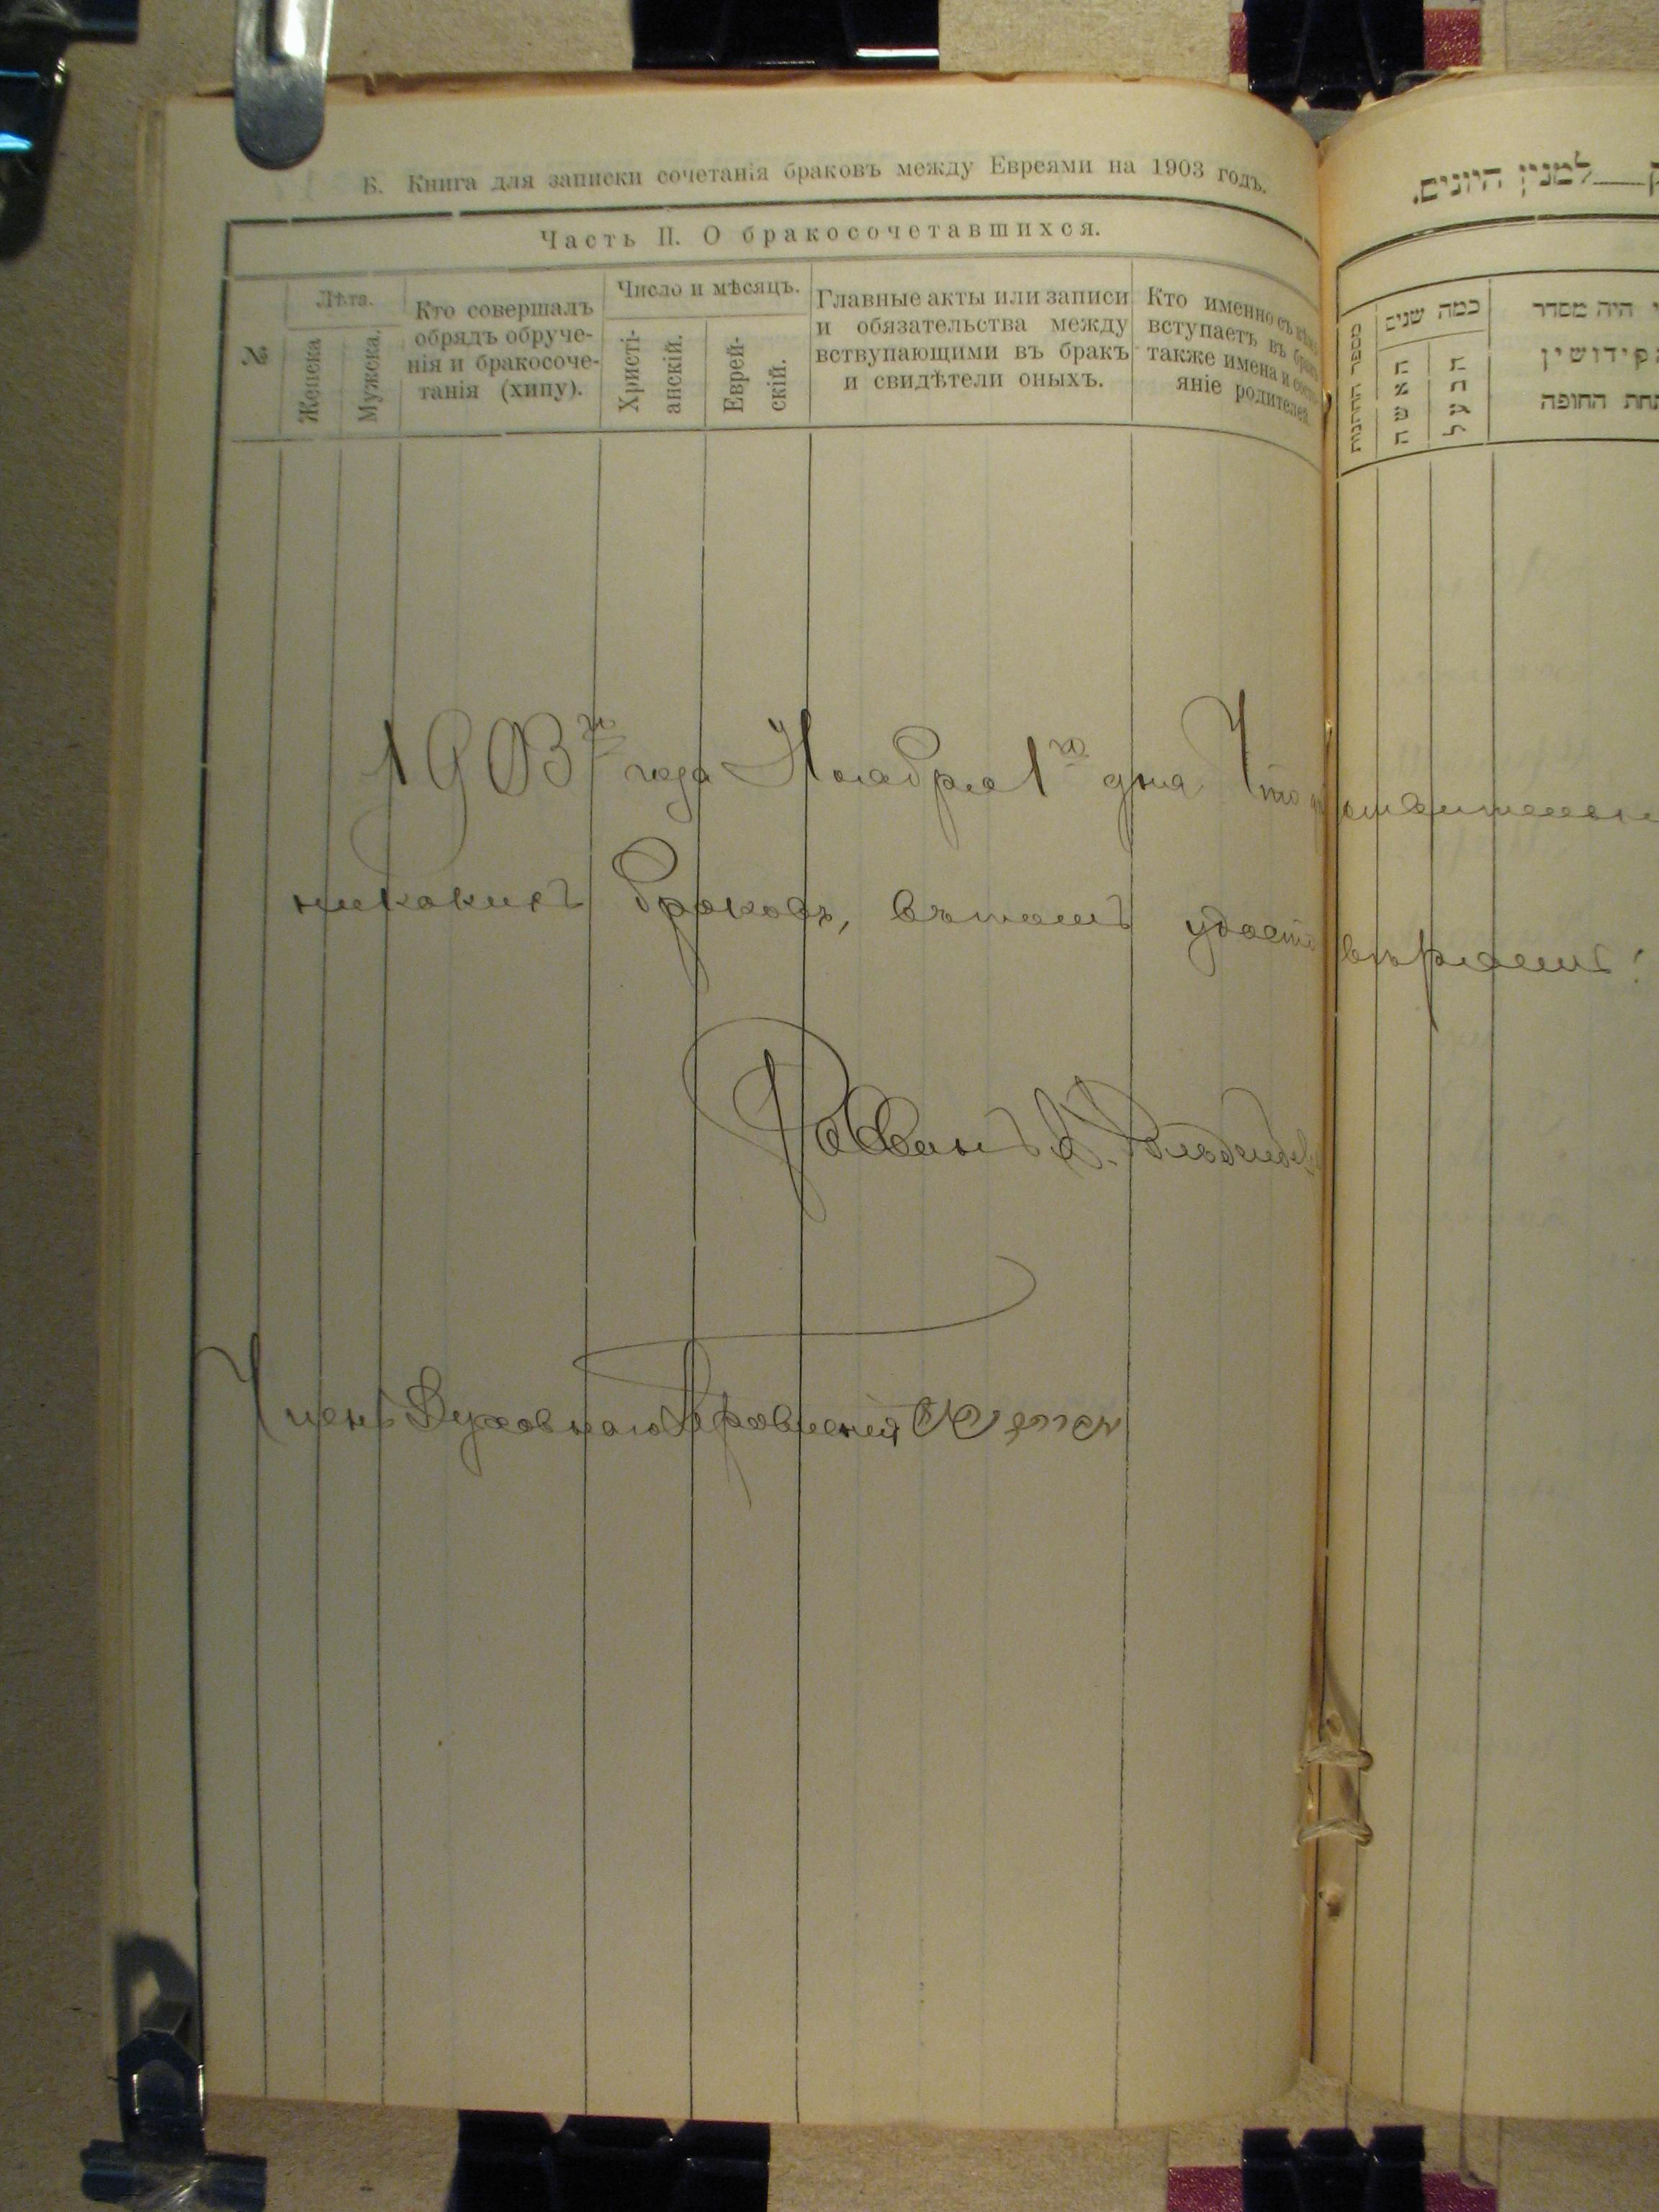 Б. Книга для записки сочетанія браковъ между Евреями на 1903 годъ.
Часть II. О бракосочетавшихся.
№
Лѣта.
Женска
Мужска.
Кто совершалъ
обрядъ обруче-
нія и бракосоче-
танія (хипу).
Число и мѣсяцъ.
Христі-
анскій.
Еврей-
скій.
Главные акты или записи
и обязательства между
вствупающими въ бракъ
и свидѣтели оныхъ.
Кто именно съ кѣмъ
вступаетъ въ бракъ
также имена и состо-
яніе родителей.
1903 года Ноября 1го дня Что
никакихъ браковъ, въ томъ удостовѣряемъ:
Раввинъ
Членъ Духовнаго Правленія
למנין היונים.
מספר החתונות
כמה שנים
האשה
הבעל
היה מסדר
קידושין
תחת החופה